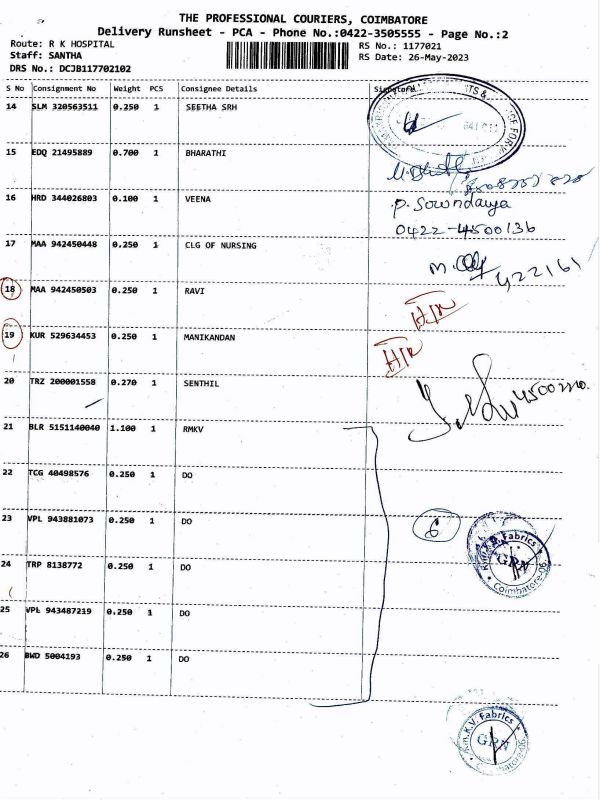 THE PROFESSIONAL COURIERS, COIMBATORE
Delivery Runsheet - PCA - Phone No.:0422-3505555 - Page No.:2
Route: R K HOSPITAL RS No.: 1177021
Staff: SANTHA RS Date: 26-May-2023
DRS No.: DCJB117702102
S No Consignment No Weight PCS Consignee Details Signature
14 SLM 320563511 0.250 1 SEETHA SRH
15 EDQ 21495889 0.700 1 BHARATHI
16 HRD 344026803 0.100 1 VEENA
P. Sowndarya
0422-4500136
17 MAA 942450448 0.250 1 CLG OF NURSING
422161
18 MAA 942450503 0.250 1 RAVI
19 KUR 529634453 0.250 1 MANIKANDAN
20 TRZ 200001558 0.270 1 SENTHIL
21 BLR 5151140040 1.100 1 RMKV
22 TCG 40498576 0.250 1 DO
23 VPL 943881073 0.250 1 DO
6
Fabrics
GRN
Coimbatore-06.
24 TRP 8138772 0.250 1 DO
25 VPL 943487219 0.250 1 DO
26 BWD 5004193 0.250 1 DO
Rm.K.V. Fabrics
GRN
Coimbatore-06.